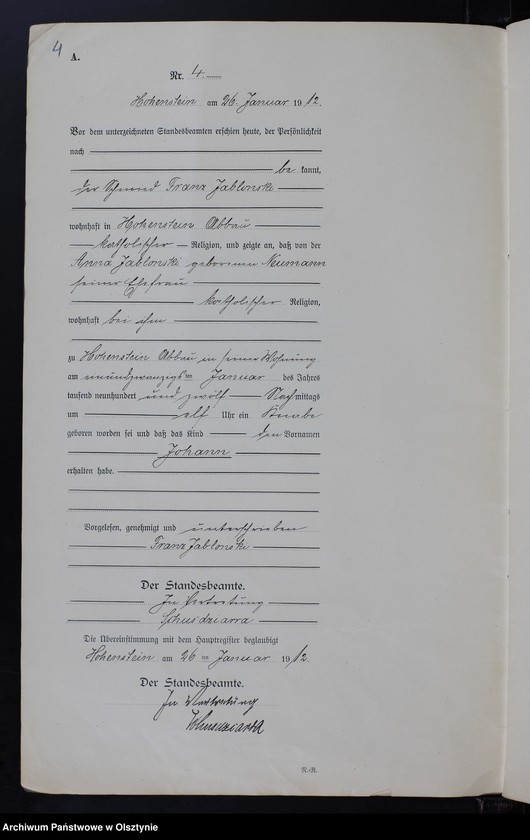 4
A.
Nr. 4.
Hohenstein am 26. Januar 1912.
Vor dem unterzeichneten Standesbeamten erschien heute, der Persönlichkeit
nach
be kannt,
der Franz Jablonski
wohnhaft in Hohenstein Abbau
katholischer Religion, und zeigte an, daß von der
Anna Jablonski geborenen Neumann
seiner Ehefrau
katholischer Religion,
wohnhaft bei ihm
zu Hohenstein Abbau in seiner Wohnung
am ten Januar des Jahres
tausend neunhundert und zwölf Nachmittags
um elf Uhr ein Knabe
geboren worden sei und daß das Kind den Vornamen
Johann
erhalten habe.
Vorgelesen, genehmigt und unterschrieben
Franz Jablonski
Der Standesbeamte.
In Vertretung
Die Übereinstimmung mit dem Hauptregister beglaubigt
Hohenstein am 26 ten Januar 1912.
Der Standesbeamte.
In Vertretung
R.-R.
Archiwum Państwowe w Olsztynie